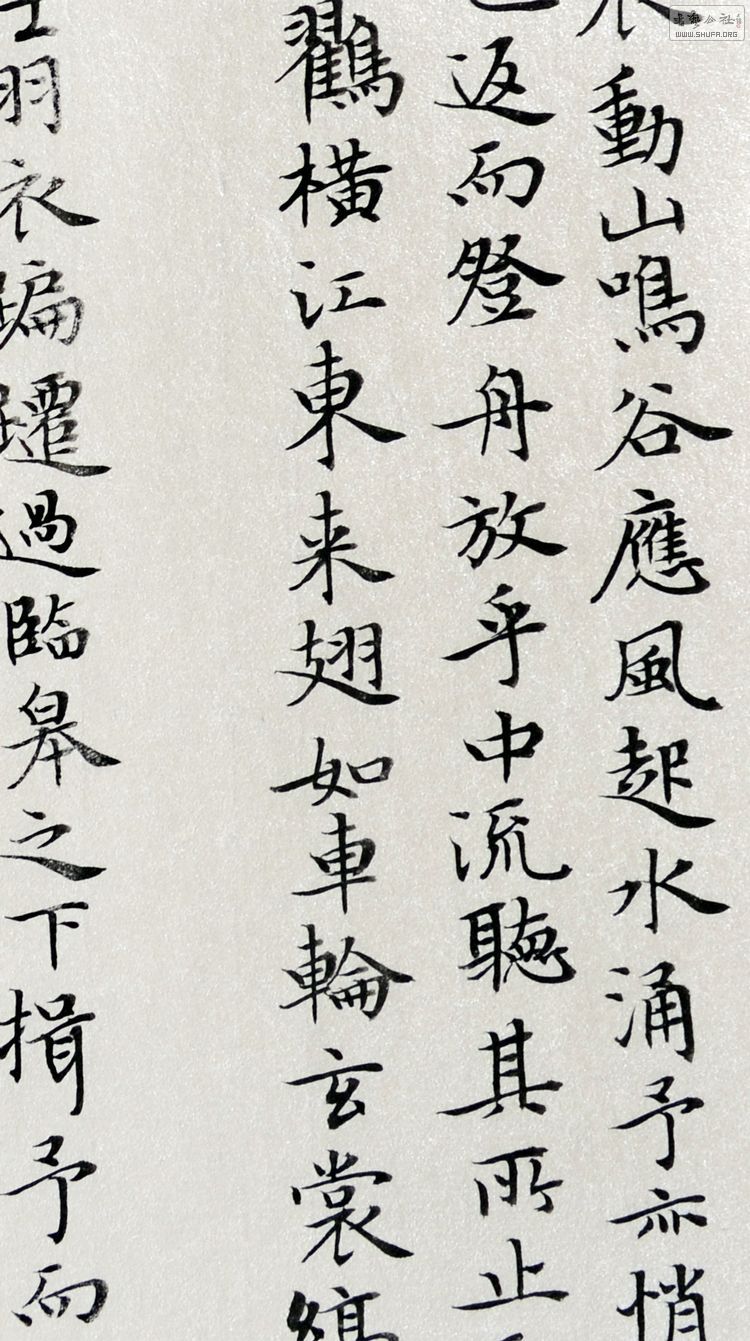 動山鳴谷應風起水涌予亦悄
返而登舟放乎中流聽其所止
鸛橫江東来翅如車輪玄裳縞
羽衣蹁躚過臨皋之下揖予而
WWW.SHUFA.ORG